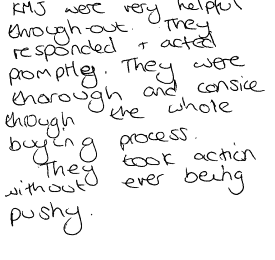 KMJ were very helpful
through-out. They
responded + acted
promptly. They were
thorough and consice
through the whole
buying process.
They took action
without ever being
pushy.